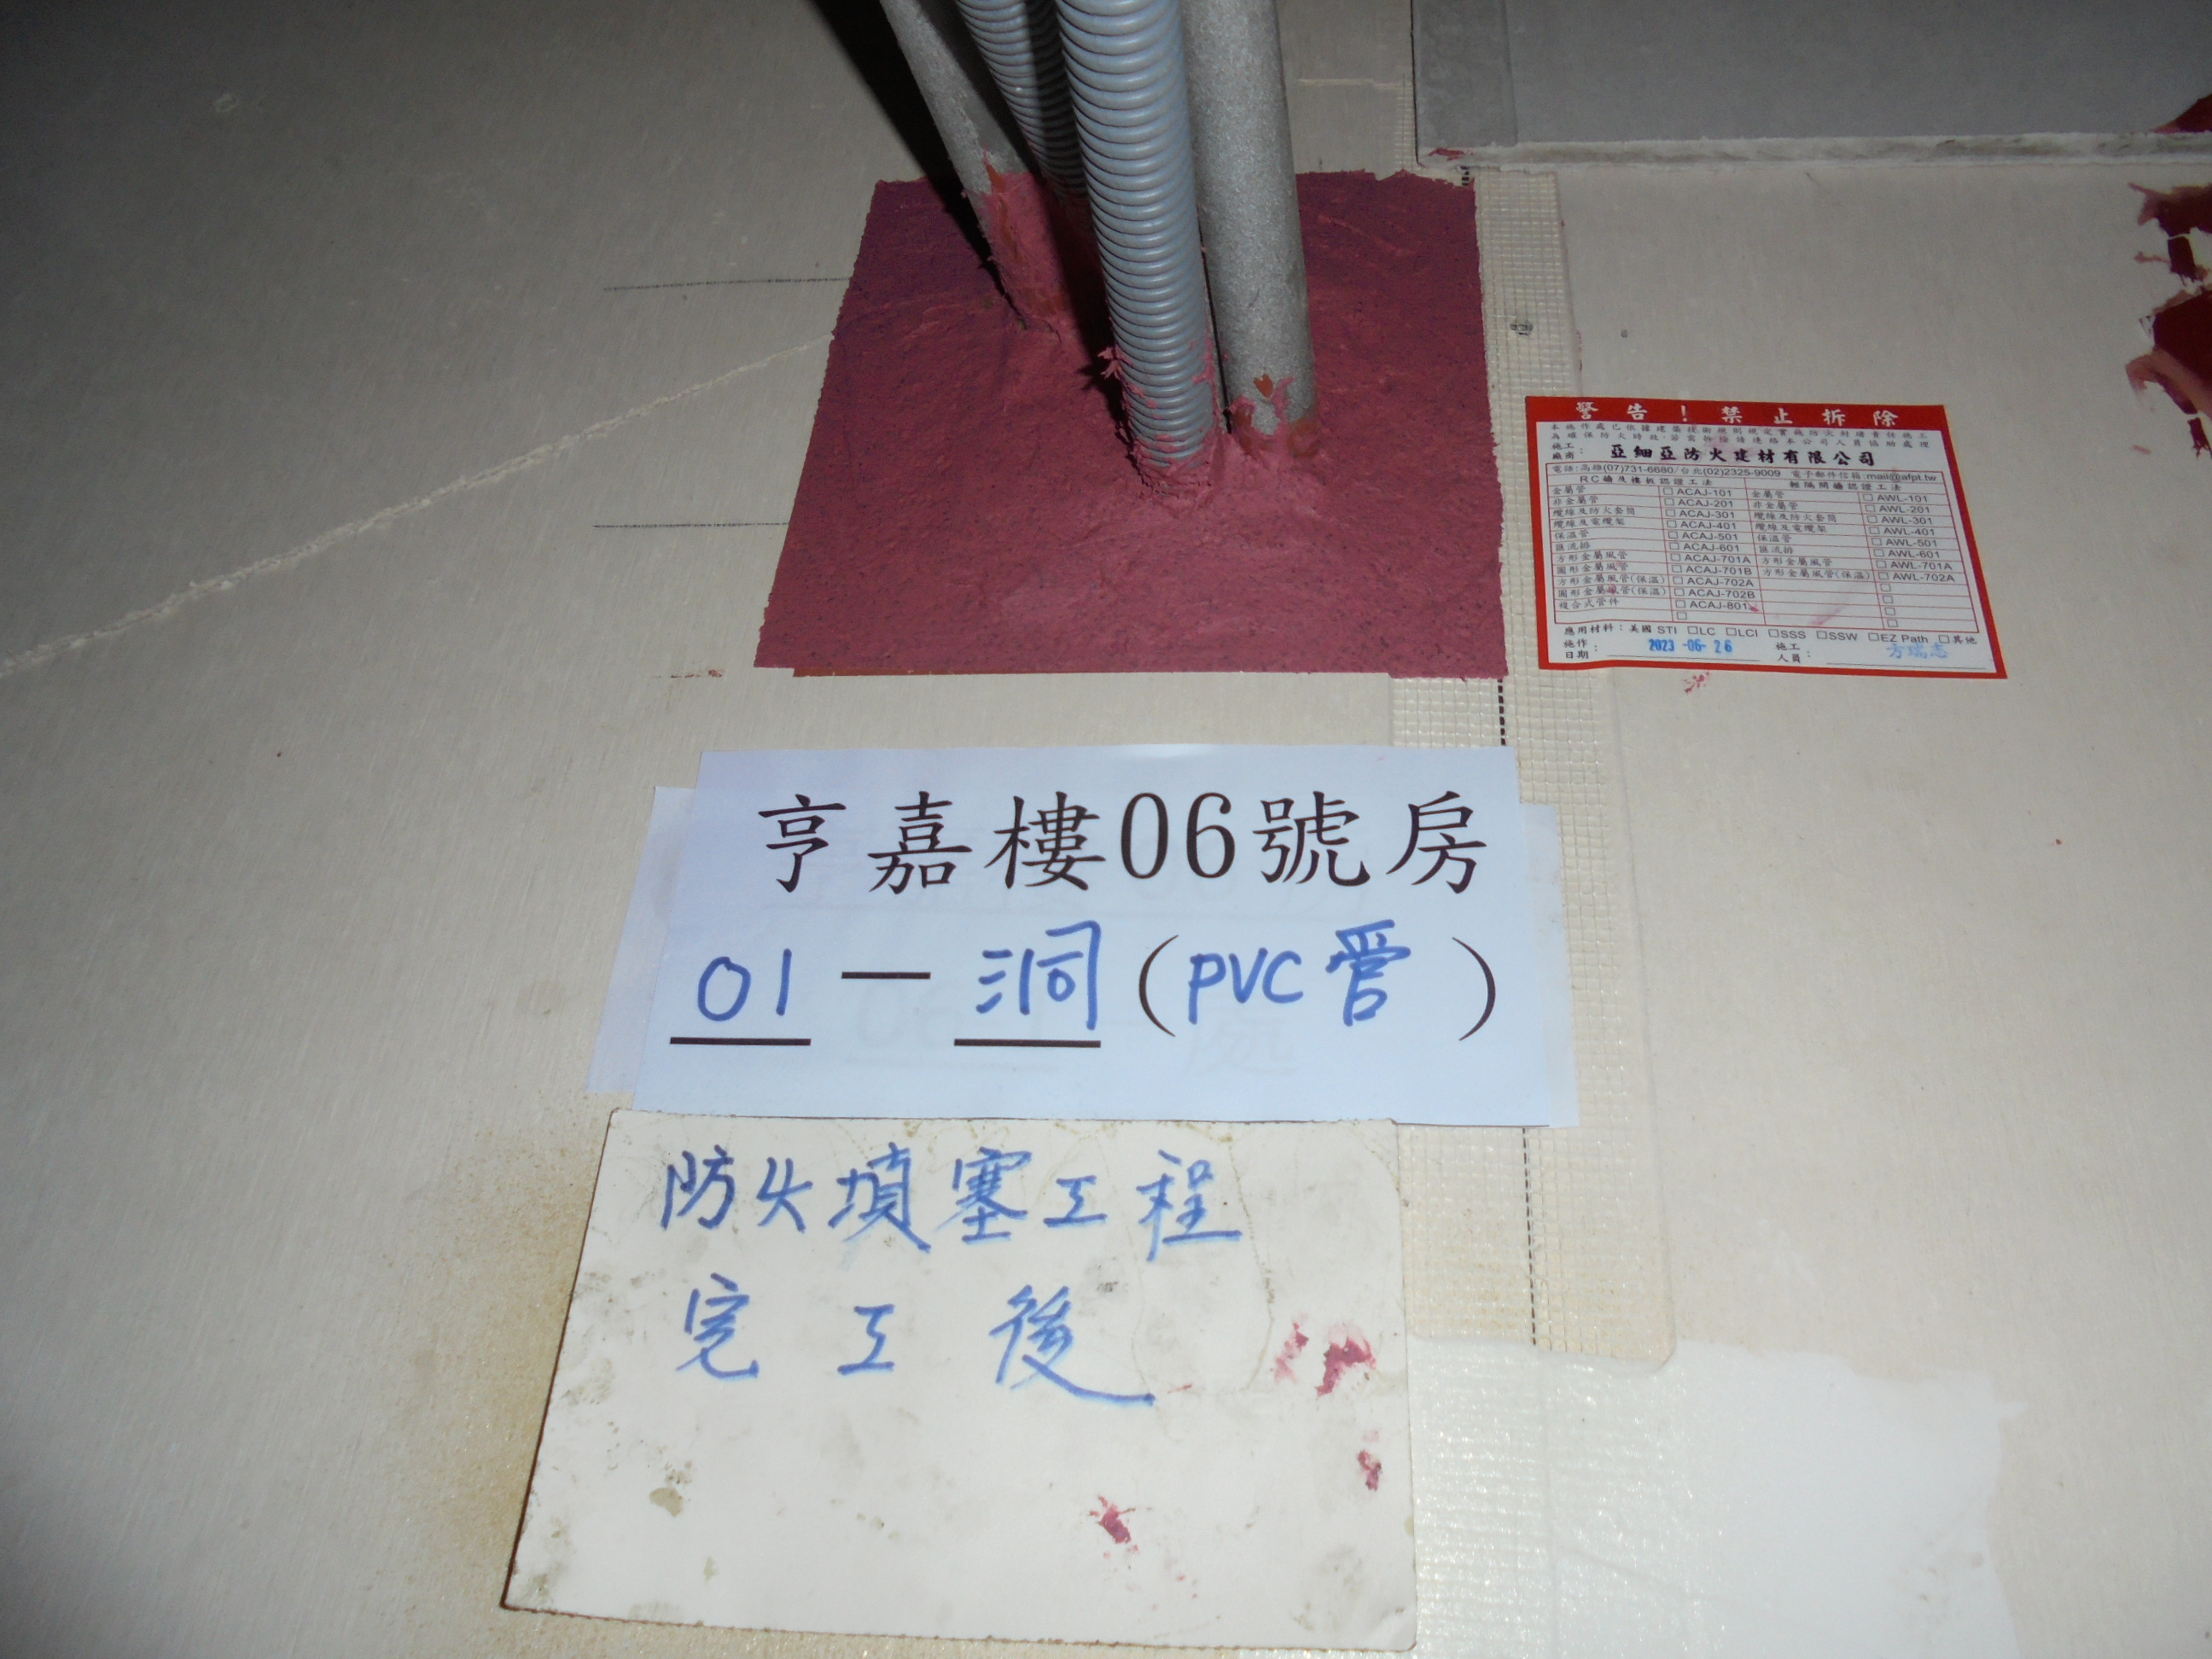 警告！禁止拆除
本施作處已依據建築技術規則規定實施防火封堵責任施工
為確保防火時效，若需拆除請連絡本公司人員協助處理
施工廠商：亞細亞防火建材有限公司
電話：高雄(07)731-6680/台北(02)2325-9009 電子郵件信箱：mail@afpt.tw
RC牆及樓板認證工法 輕隔間牆認證工法
金屬管 □ ACAJ-101 金屬管 □ AWL-101
非金屬管 □ ACAJ-201 非金屬管 □ AWL-201
纜線及防火套筒 □ ACAJ-301 纜線及防火套筒 □ AWL-301
纜線及電纜架 □ ACAJ-401 纜線及電纜架 □ AWL-401
保溫管 □ ACAJ-501 保溫管 □ AWL-501
匯流排 □ ACAJ-601 匯流排 □ AWL-601
方形金屬風管 □ ACAJ-701A 方形金屬風管 □ AWL-701A
圓形金屬風管 □ ACAJ-701B 方形金屬風管(保溫) □ AWL-702A
方形金屬風管(保溫) □ ACAJ-702A □
圓形金屬風管(保溫) □ ACAJ-702B □
複合式管件 □ ACAJ-801 □
□ □
應用材料：美國 STI □LC □LCI □SSS □SSW □EZ Path □其他
施作日期：2023-06-26 施工人員：方瑞志
亨嘉樓06號房
01－洞(PVC管)
防火填塞工程
完工後